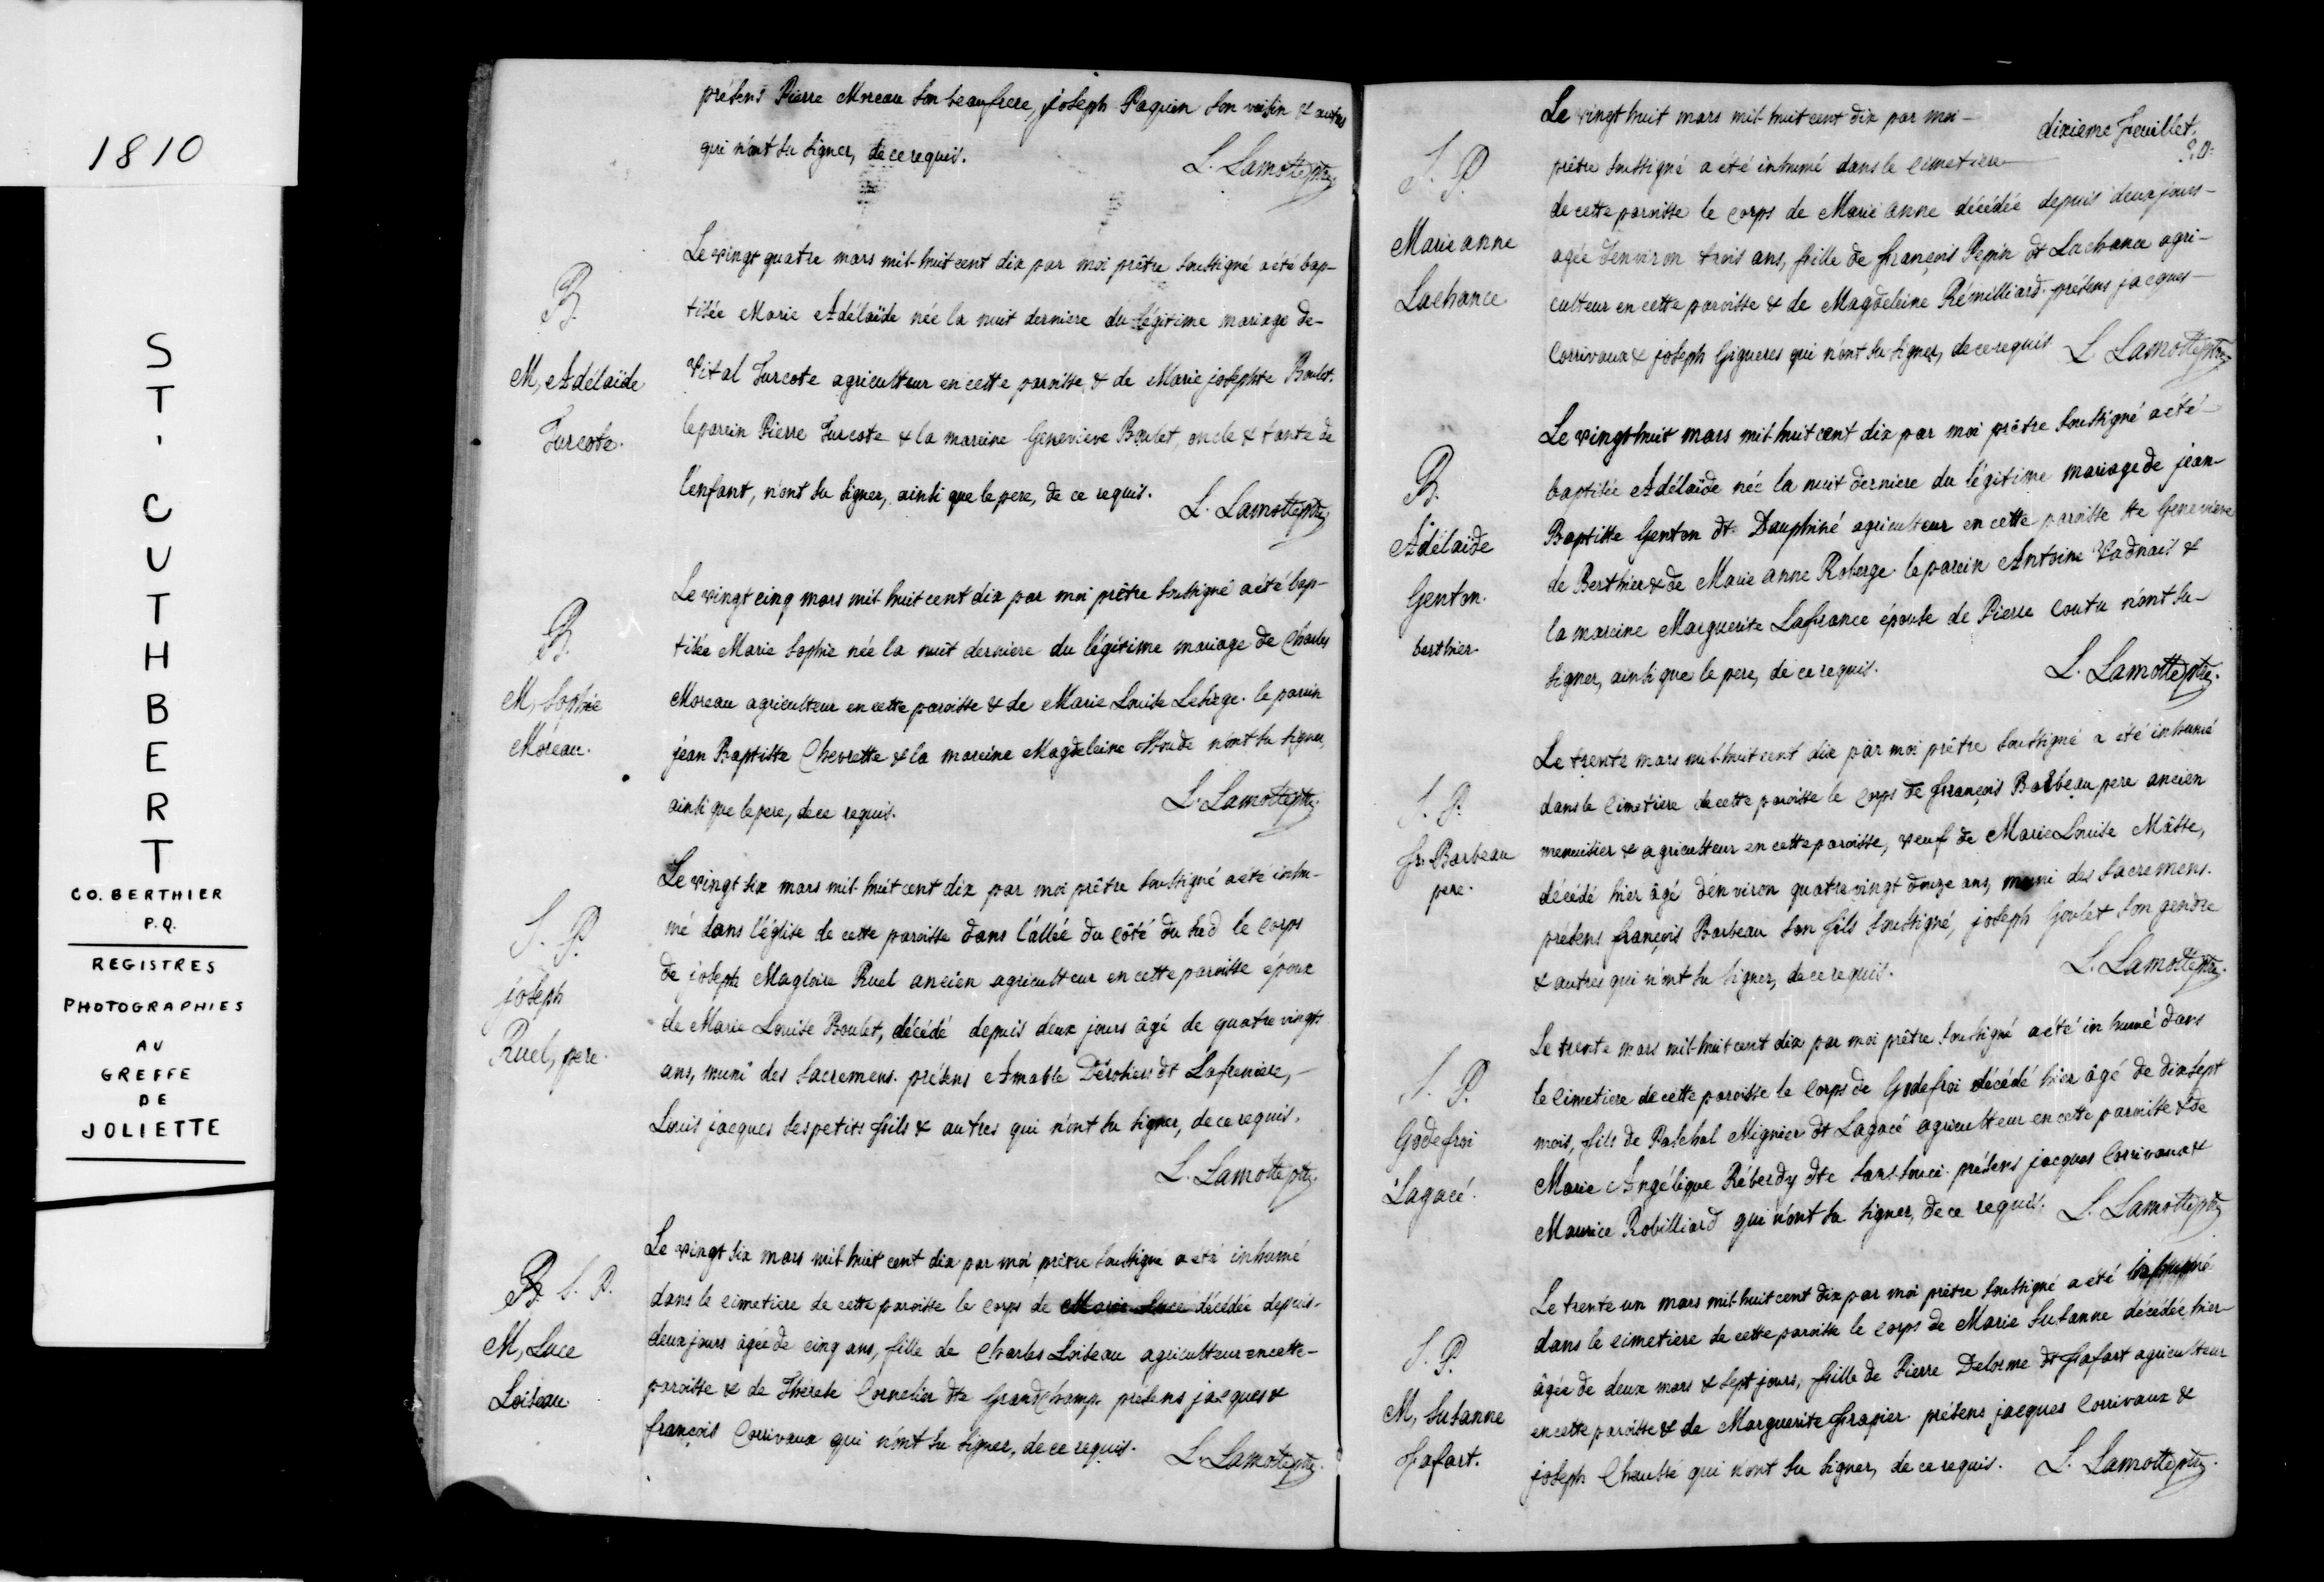 1810
ST. CUTHBERT
CO. BERTHIER
P.Q.
REGISTRES
PHOTOGRAPHIES
AU
GREFFE
DE
JOLIETTE
présens Pierre Moreau son beaufrere, joseph Paquin son voisin & autres
qui n'ont su signer, de ce requis.
L. Lamotte ptre
B.
M, Adélaïde
Turcote.
Le vingt quatre mars mil-huit cent dix par moi prêtre soussigné a été bap-
tisée Marie Adélaïde née la nuit derniere du légitime mariage de-
Vital Turcote agriculteur en cette paroisse, & de Marie josephte Boulet.
le parein Pierre Turcote & la mareine Genevieve Boulet, oncle & tante de
l'enfant, n'ont su signer, ainsi que le pere, de ce requis.
L. Lamotte ptre
B.
M, Sophie
Moreau.
Le vingt cinq mars mil-huit cent dix par moi prêtre soussigné a été bap-
tisée Marie Sophie née la nuit derniere du légitime mariage de Charles
Moreau agriculteur en cette paroisse & de Marie Louise Lesiege. le parein
jean Baptiste Chevrette & la mareine Magdeleine Houde n'ont su signer,
ainsi que le pere, de ce requis.
L. Lamotte ptre
S. P.
joseph
Ruel, pere.
Le vingt six mars mil-huit cent dix par moi prêtre soussigné a été inhu-
mé dans l'église de cette paroisse dans l'allée du côté du sud le corps
de joseph Magloire Ruel ancien agriculteur en cette paroisse époux
de Marie Louise Boulet, décédé depuis deux jours âgé de quatre vingt
ans, muni des sacremens. présens Amable Désrosiers dt Lafreniere,-
Louis jacques ses petits fils & autres qui n'ont su signer, de ce requis.
L. Lamotte ptre.
B. S. P.
M, Luce
Loiseau
Le vingt six mars mil huit cent dix par moi prêtre soussigné a été inhumé
dans le cimetiere de cette paroisse le corps de Marie Luce décédée depuis-
deux jours âgée de cinq ans, fille de Charles Loiseau agriculteur en cette-
paroisse & de Thérese Cornelier dte Grandchamp. présens jacques &
françois Corrivaux qui n'ont su signer, de ce requis.
L. Lamotte ptre.
dixieme feuillet.
S. P.
Marie anne
Lachance
Le vingt huit mars mil-huit cent dix par moi-
prêtre soussigné a été inhumé dans le cimetiere
de cette paroisse le corps de Marie anne décédée depuis deux jours-
agée d'environ trois ans, fille de françois Pepin dt Lachance agri-
culteur en cette paroisse & de Magdeleine Rémilliard. présens jacques-
Corrivaux & joseph Gigueres qui n'ont su signer, de ce requis
L. Lamotte ptre
B.
Adélaïde
Genton.
berthier.
Le vingt-huit mars mil-huit cent dix par moi prêtre soussigné a été-
baptisée Adélaïde née la nuit derniere du légitime mariage de jean-
Baptiste Genton dt Dauphiné agriculteur en cette paroisse ste Genevieve
de Berthier & de Marie anne Roberge. le parein Antoine Vadnais &
la mareine Marguerite Lafrance épouse de Pierre Coutu n'ont su-
signer, ainsi que le pere, de ce requis.
L. Lamotte ptre.
S. P.
fr. Barbeau
pere.
Le trente mars mil-huit cent dix par moi prêtre soussigné a été inhumé
dans le cimetiere de cette paroisse le corps de françois Barbeau pere ancien
menuisier & agriculteur en cette paroisse, veuf de Marie Louise Masse,
décédé hier âgé d'environ quatre vingt douze ans, muni des sacremens.
présens françois Barbeau son fils soussigné, joseph Goulet son gendre
& autres qui n'ont su signer, de ce requis.
L. Lamotte ptre.
S. P.
Godefroi
Lagacé.
Le trente mars mil-huit cent dix par moi prêtre soussigné a été inhumé dans
le cimetiere de cette paroisse le corps de Godefroi décédé hier âgé de dix sept
mois, fils de Paschal Mignier dt Lagacé agriculteur en cette paroisse & de
Marie Angélique Réberdy dte Sans-souci. présens jacques Corrivaux &
Maurice Robilliard qui n'ont su signer, de ce requis.
L. Lamotte ptre
S. P.
M, Susanne
fafart.
Le trente un mars mil-huit cent dix par moi prêtre soussigné a été inhumé
dans le cimetiere de cette paroisse le corps de Marie Susanne décédée hier-
âgée de deux mars & sept jours, fille de Pierre Delorme dt fafart agriculteur
en cette paroisse & de Marguerite frapier. présens jacques Corrivaux &
joseph Chaussé qui n'ont su signer, de ce requis.
L. Lamotte ptre.